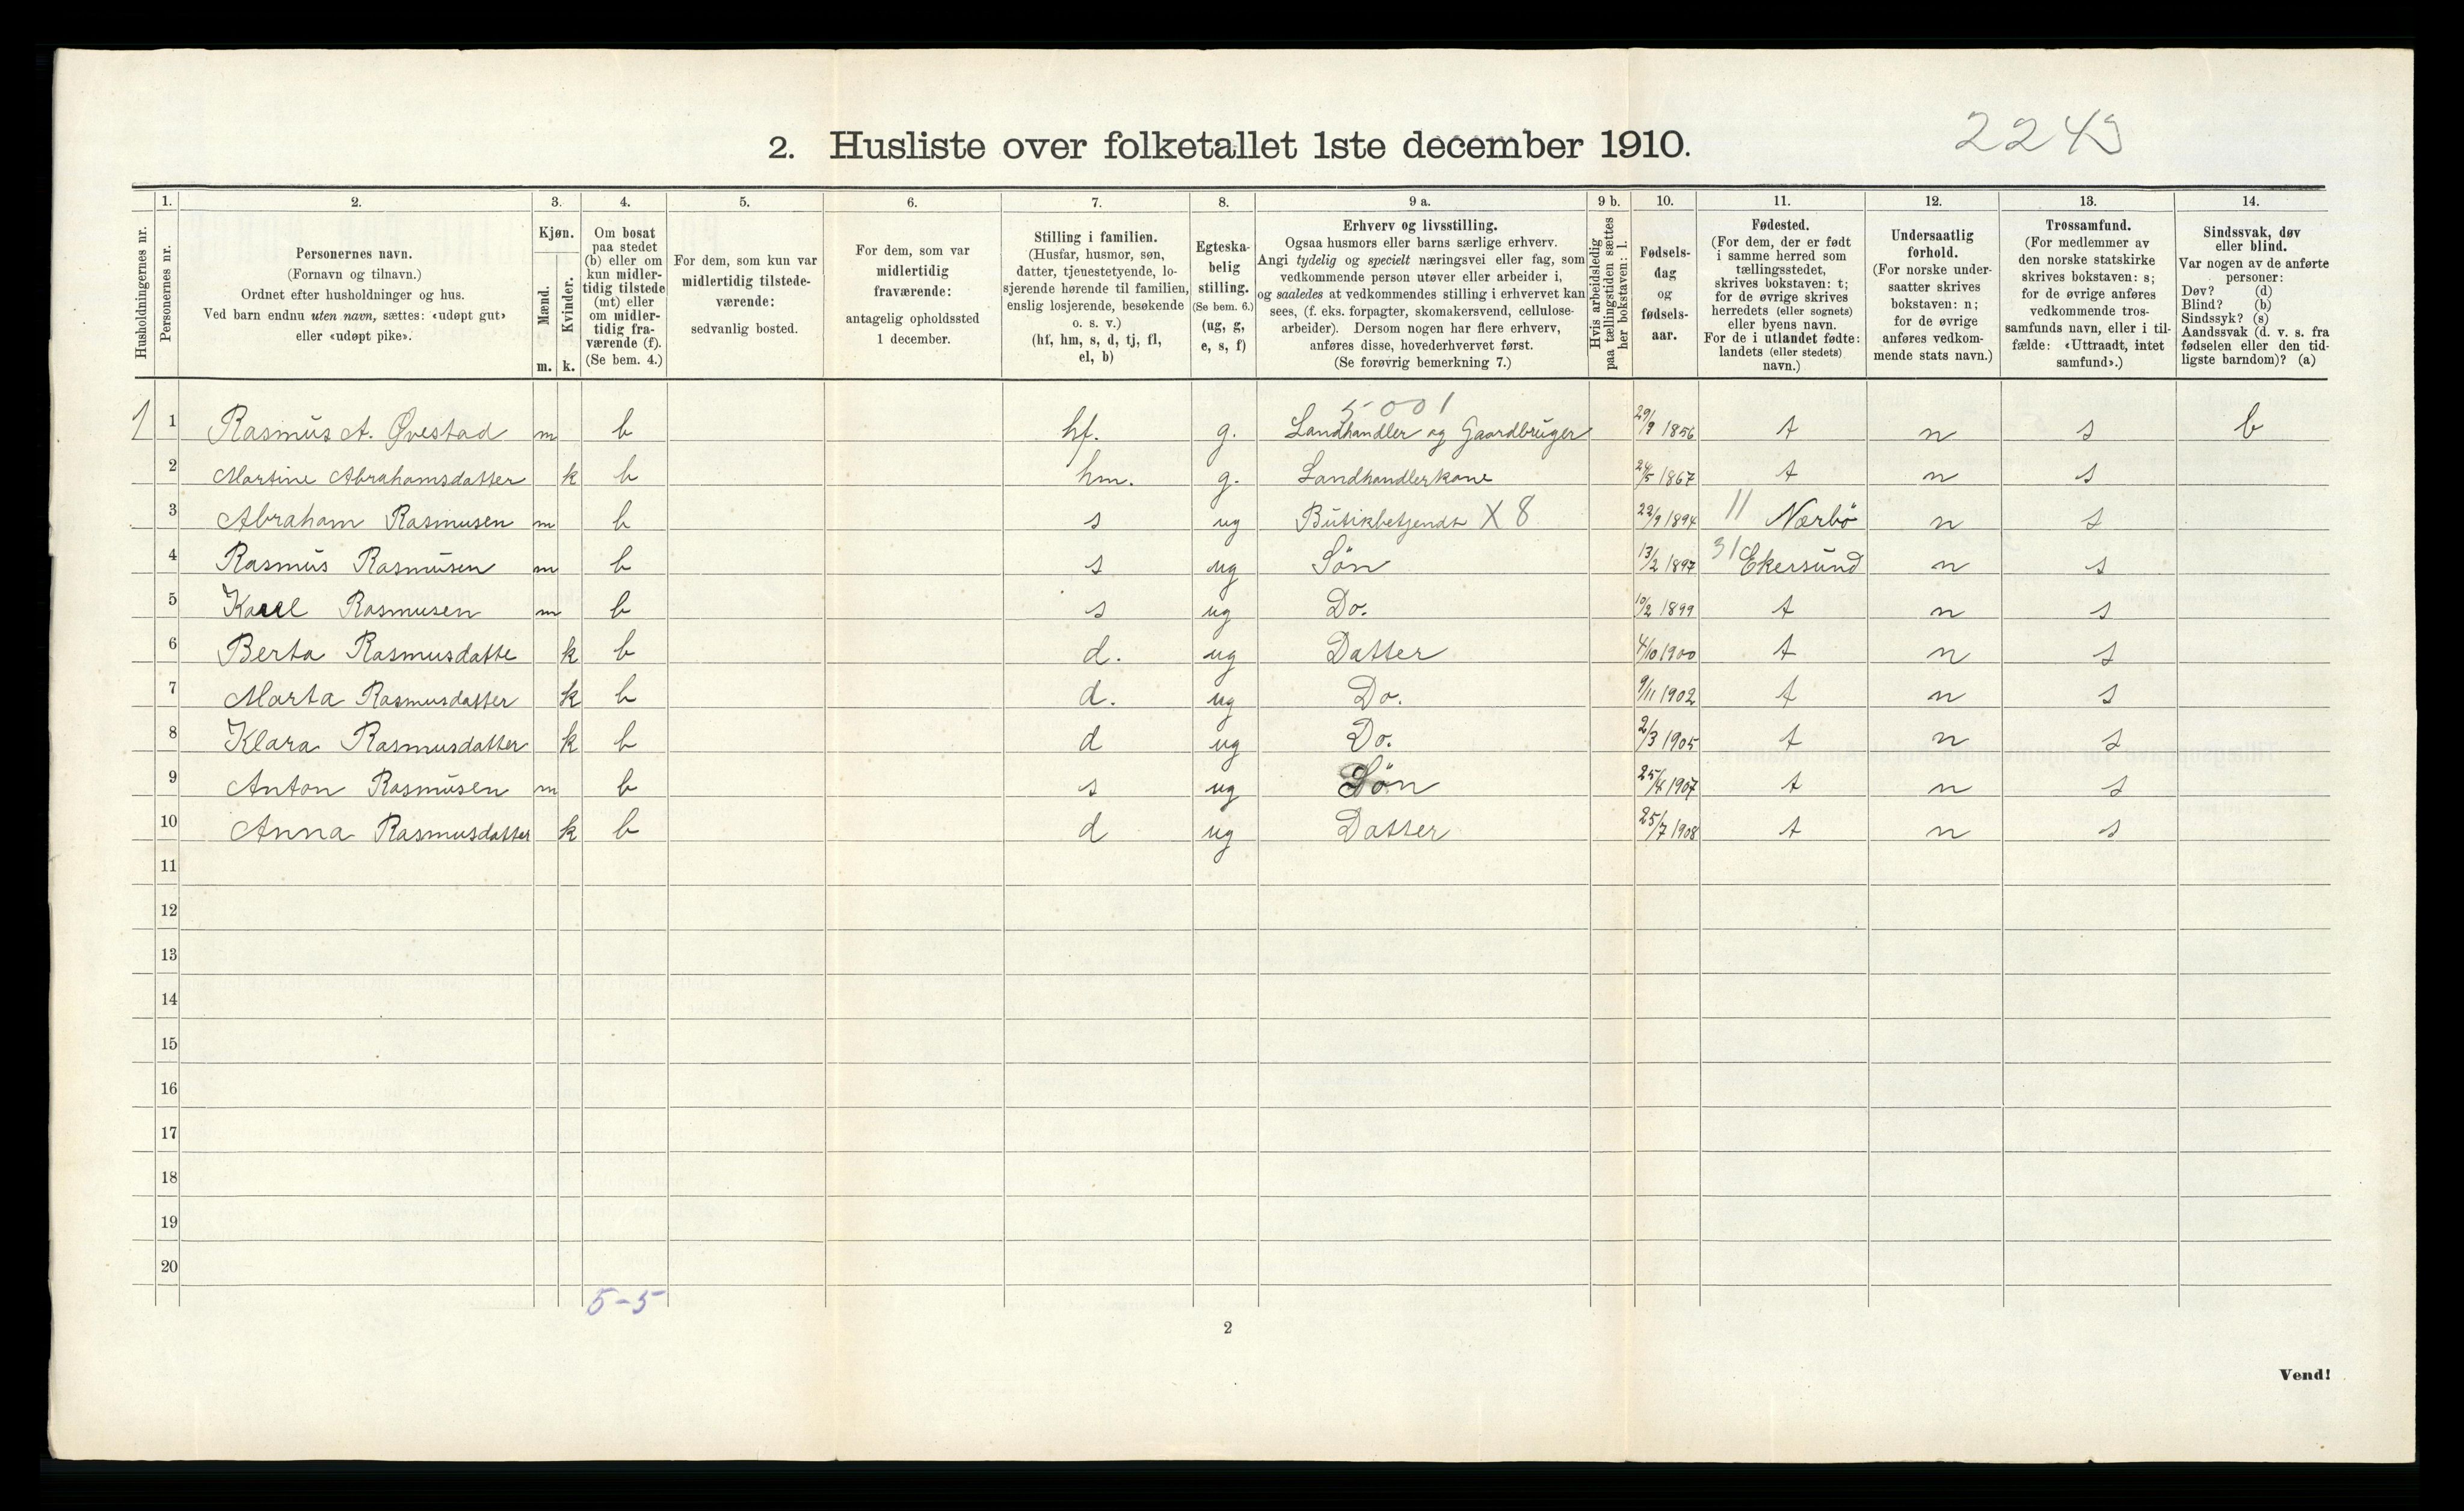 2. Husliste over folketallet 1ste december 1910.
2243
Husholdningernes nr.
1. Personernes nr.
2. Personernes navn.
(Fornavn og tilnavn.)
Ordnet efter husholdninger og hus.
Ved barn endnu uten navn, sættes: «udøpt gut»
eller «udøpt pike».
3. Kjøn.
Mænd. Kvinder.
m. k.
4. Om bosat
paa stedet
(b) eller om
kun midler-
tidig tilstede
(mt) eller
om midler-
tidig fra-
værende (f).
(Se bem. 4.)
5. For dem, som kun var
midlertidig tilstede-
værende:
sedvanlig bosted.
6. For dem, som var
midlertidig
fraværende:
antagelig opholdssted
1 december.
7. Stilling i familien.
(Husfar, husmor, søn,
datter, tjenestetyende, lo-
sjerende hørende til familien,
enslig losjerende, besøkende
o. s. v.)
(hf, hm, s, d, tj, fl,
el, b)
8. Egteska-
belig
stilling.
(Se bem. 6.)
(ug, g,
e, s, f)
9 a. Erhverv og livsstilling.
Ogsaa husmors eller barns særlige erhverv.
Angi tydelig og specielt næringsvei eller fag, som
vedkommende person utøver eller arbeider i,
og saaledes at vedkommendes stilling i erhvervet kan
sees, (f. eks. forpagter, skomakersvend, cellulose-
arbeider). Dersom nogen har flere erhverv,
anføres disse, hovederhvervet først.
(Se forøvrig bemerkning 7.)
9 b. Hvis arbeidsledig
paa tællingstiden sættes
her bokstaven: l.
10. Fødsels-
dag
og
fødsels-
aar.
11. Fødested.
(For dem, der er født
i samme herred som
tællingsstedet,
skrives bokstaven: t;
for de øvrige skrives
herredets (eller sognets)
eller byens navn.
For de i utlandet fødte:
landets (eller stedets)
navn.)
12. Undersaatlig
forhold.
(For norske under-
saatter skrives
bokstaven: n;
for de øvrige
anføres vedkom-
mende stats navn.)
13. Trossamfund.
(For medlemmer av
den norske statskirke
skrives bokstaven: s;
for de øvrige anføres
vedkommende tros-
samfunds navn, eller i til-
fælde: «Uttraadt, intet
samfund».)
14. Sindssvak, døv
eller blind.
Var nogen av de anførte
personer:
Døv? (d)
Blind? (b)
Sindssyk? (s)
Aandssvak (d. v. s. fra
fødselen eller den tid-
ligste barndom)? (a)
5-001
1 1 Rasmus A. Øvestad m b hf. g. Landhandler og Gaardbruger 29/9 1856 t n s b
2 Martine Abrahamsdatter k b hm. g. Landhandlerkone 24/5 1867 t n s
3 Abraham Rasmusen m b s ug Butikbetjendt X 8 22/9 1894 11 Nærbö n s
4 Rasmus Rasmusen m b s ug Sön 13/2 1897 31 Ekersund n s
5 Karl Rasmusen m b s ug Do. 10/2 1899 t n s
6 Berta Rasmusdatte k b d. ug Datter 4/10 1900 t n s
7 Marta Rasmusdatter k b d. ug Do. 9/11 1902 t n s
8 Klara Rasmusdatter k b d ug Do. 2/3 1905 t n s
9 Anton Rasmusen m b s ug Sön 25/4 1907 t n s
10 Anna Rasmusdatter k b d ug Datter 25/7 1908 t n s
11
12
13
14
15
16
17
18
19
20
5-5
2
Vend!